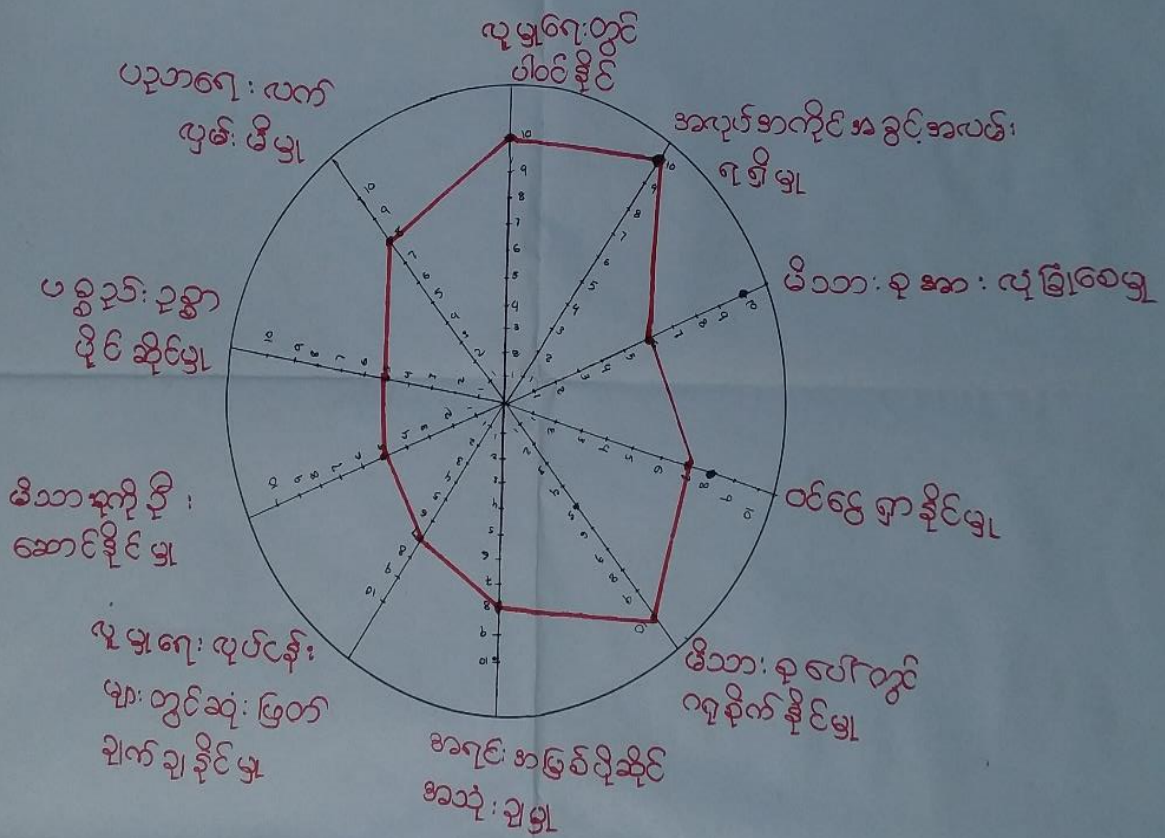 လူမှုရေးတွင်
ပါဝင်နိုင်
အလုပ်အကိုင်အခွင့်အလမ်း
ရရှိမှု
မိသားစုအား လုံခြုံစေမှု
ဝင်ငွေရှာနိုင်မှု
မိသားစုပေါ်တွင်
ဂရုစိုက်နိုင်မှု
အရင်းအဖြစ်ပိုဆိုင်
အသုံးချမှု
လူမှုရေးလုပ်ငန်း
များတွင်ဆုံးဖြတ်
ချက်ချနိုင်မှု
မိသားစုကိုဦး
ဆောင်နိုင်မှု
ပစ္စည်းဥစ္စာ
ပိုင်ဆိုင်မှု
ပညာရေးလက်
လှမ်းမီမှု